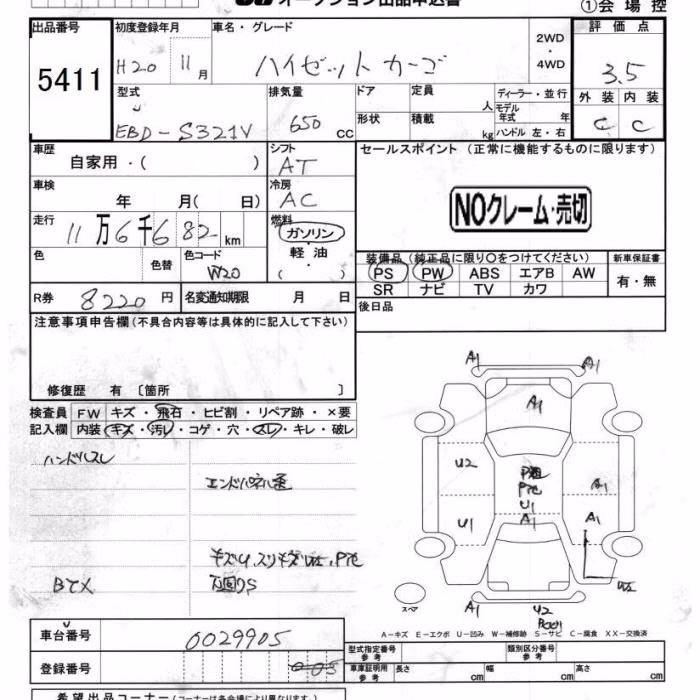 オークション出品申込書
①会場控
出品番号
5411
初度登録年月
H20 11月
車名・グレード
ハイゼットカーゴ
2WD
・
4WD
評価点
3.5
外装 内装
C C
型式
EBD-S321V
排気量
650 cc
ドア
形状
定員
人
積載
kg
ディーラー・並行
モデル年式 年
ハンドル 左・右
車歴
自家用・( )
シフト
AT
車検
年 月( 日)
冷房
AC
走行
11万6千682km
燃料
ガソリン
・
軽油
( )
色
色替
色コード
W20
R券 8220円
名変通知期限 月 日
セールスポイント (正常に機能するものに限ります)
NOクレーム・売切
装備品 (純正品に限り○をつけてください)
PS PW ABS エアB AW
SR ナビ TV カワ
新車保証書
有・無
後日品
注意事項申告欄(不具合内容等は具体的に記入して下さい)
修復歴 有 〔箇所 〕
検査員記入欄
FW キズ・飛石・ヒビ割・リペア跡・×要
内装 キズ・汚レ・コゲ・穴・スレ・キレ・破レ
ハンドルスレ
BTX
A1
A1
A1
U2
U1
U1
A1
A1
A1
A1
U2
スペア
A-キズ E-エクボ U-凹み W-補修跡 S-サビ C-腐食 XX-交換済
車台番号
0029905
登録番号
型式指定番号
参考
類別区分番号
参考
車庫証明用
参考
長さ cm
幅 cm
高さ cm
希望出品コーナー(コーナーは各会場により異なります。)